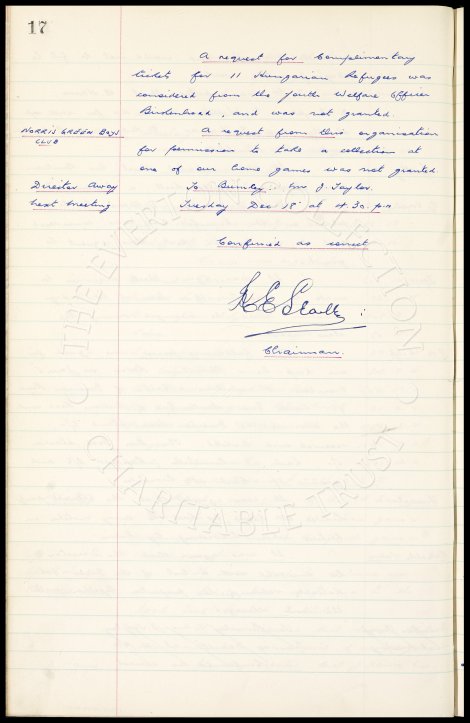 17
A request for Complimentary
tickets for 11 Hungarian Refugees was
considered from the Youth Welfare Officer
Birkenhead, and was not granted.
NORRIS GREEN BOYS CLUB
A request from this organisation
for permission to take a collection at
one of our home games was not granted.
Director Away
To Burnley: Mr J Taylor.
Next Meeting
Tuesday Dec 18 at 4.30 p.m
Confirmed as correct
Chairman.
THE EVERTON COLLECTION
CHARITABLE TRUST